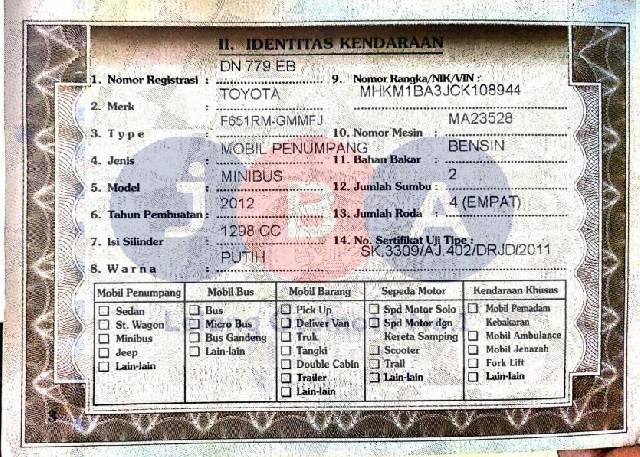 II. IDENTITAS KENDARAAN
1. Nomor Registrasi : DN 779 EB
2. Merk : TOYOTA
3. Type : F651RM-GMMFJ
4. Jenis : MOBIL PENUMPANG
5. Model : MINIBUS
6. Tahun Pembuatan : 2012
7. Isi Silinder : 1298 CC
8. Warna : PUTIH
9. Nomor Rangka/NIK/VIN : MHKM1BA3JCK108944
10. Nomor Mesin : MA23528
11. Bahan Bakar : BENSIN
12. Jumlah Sumbu : 2
13. Jumlah Roda : 4 (EMPAT)
14. No. Sertifikat Uji Tipe : SK.3309/AJ.402/DRJD/2011
Mobil Penumpang
Sedan
St. Wagon
Minibus
Jeep
Lain-lain
Mobil Bus
Bus
Micro Bus
Bus Gandeng
Lain-lain
Mobil Barang
Pick Up
Deliver Van
Truk
Tangki
Double Cabin
Trailer
Lain-lain
Sepeda Motor
Spd Motor Solo
Spd Motor dgn
Kereta Samping
Scooter
Trail
Lain-lain
Kendaraan Khusus
Mobil Pemadam
Kebakaran
Mobil Ambulance
Mobil Jenazah
Fork Lift
Lain-lain
JBA
8